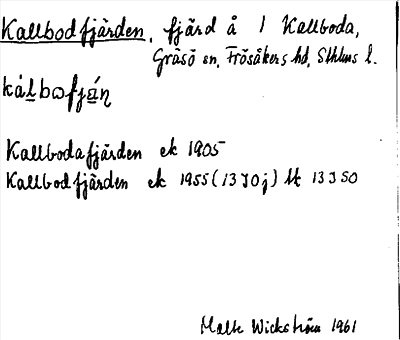 Kallbodfjärden, fjärd å 1 Kallboda,
Gräsö sn, Frösåkers hd, Sthlms l.
kálbofjän
Kallbodafjärden ek 1905
Kallbodfjärden ek 1955 (13J0j) lt 13350
Malte Wickström 1961